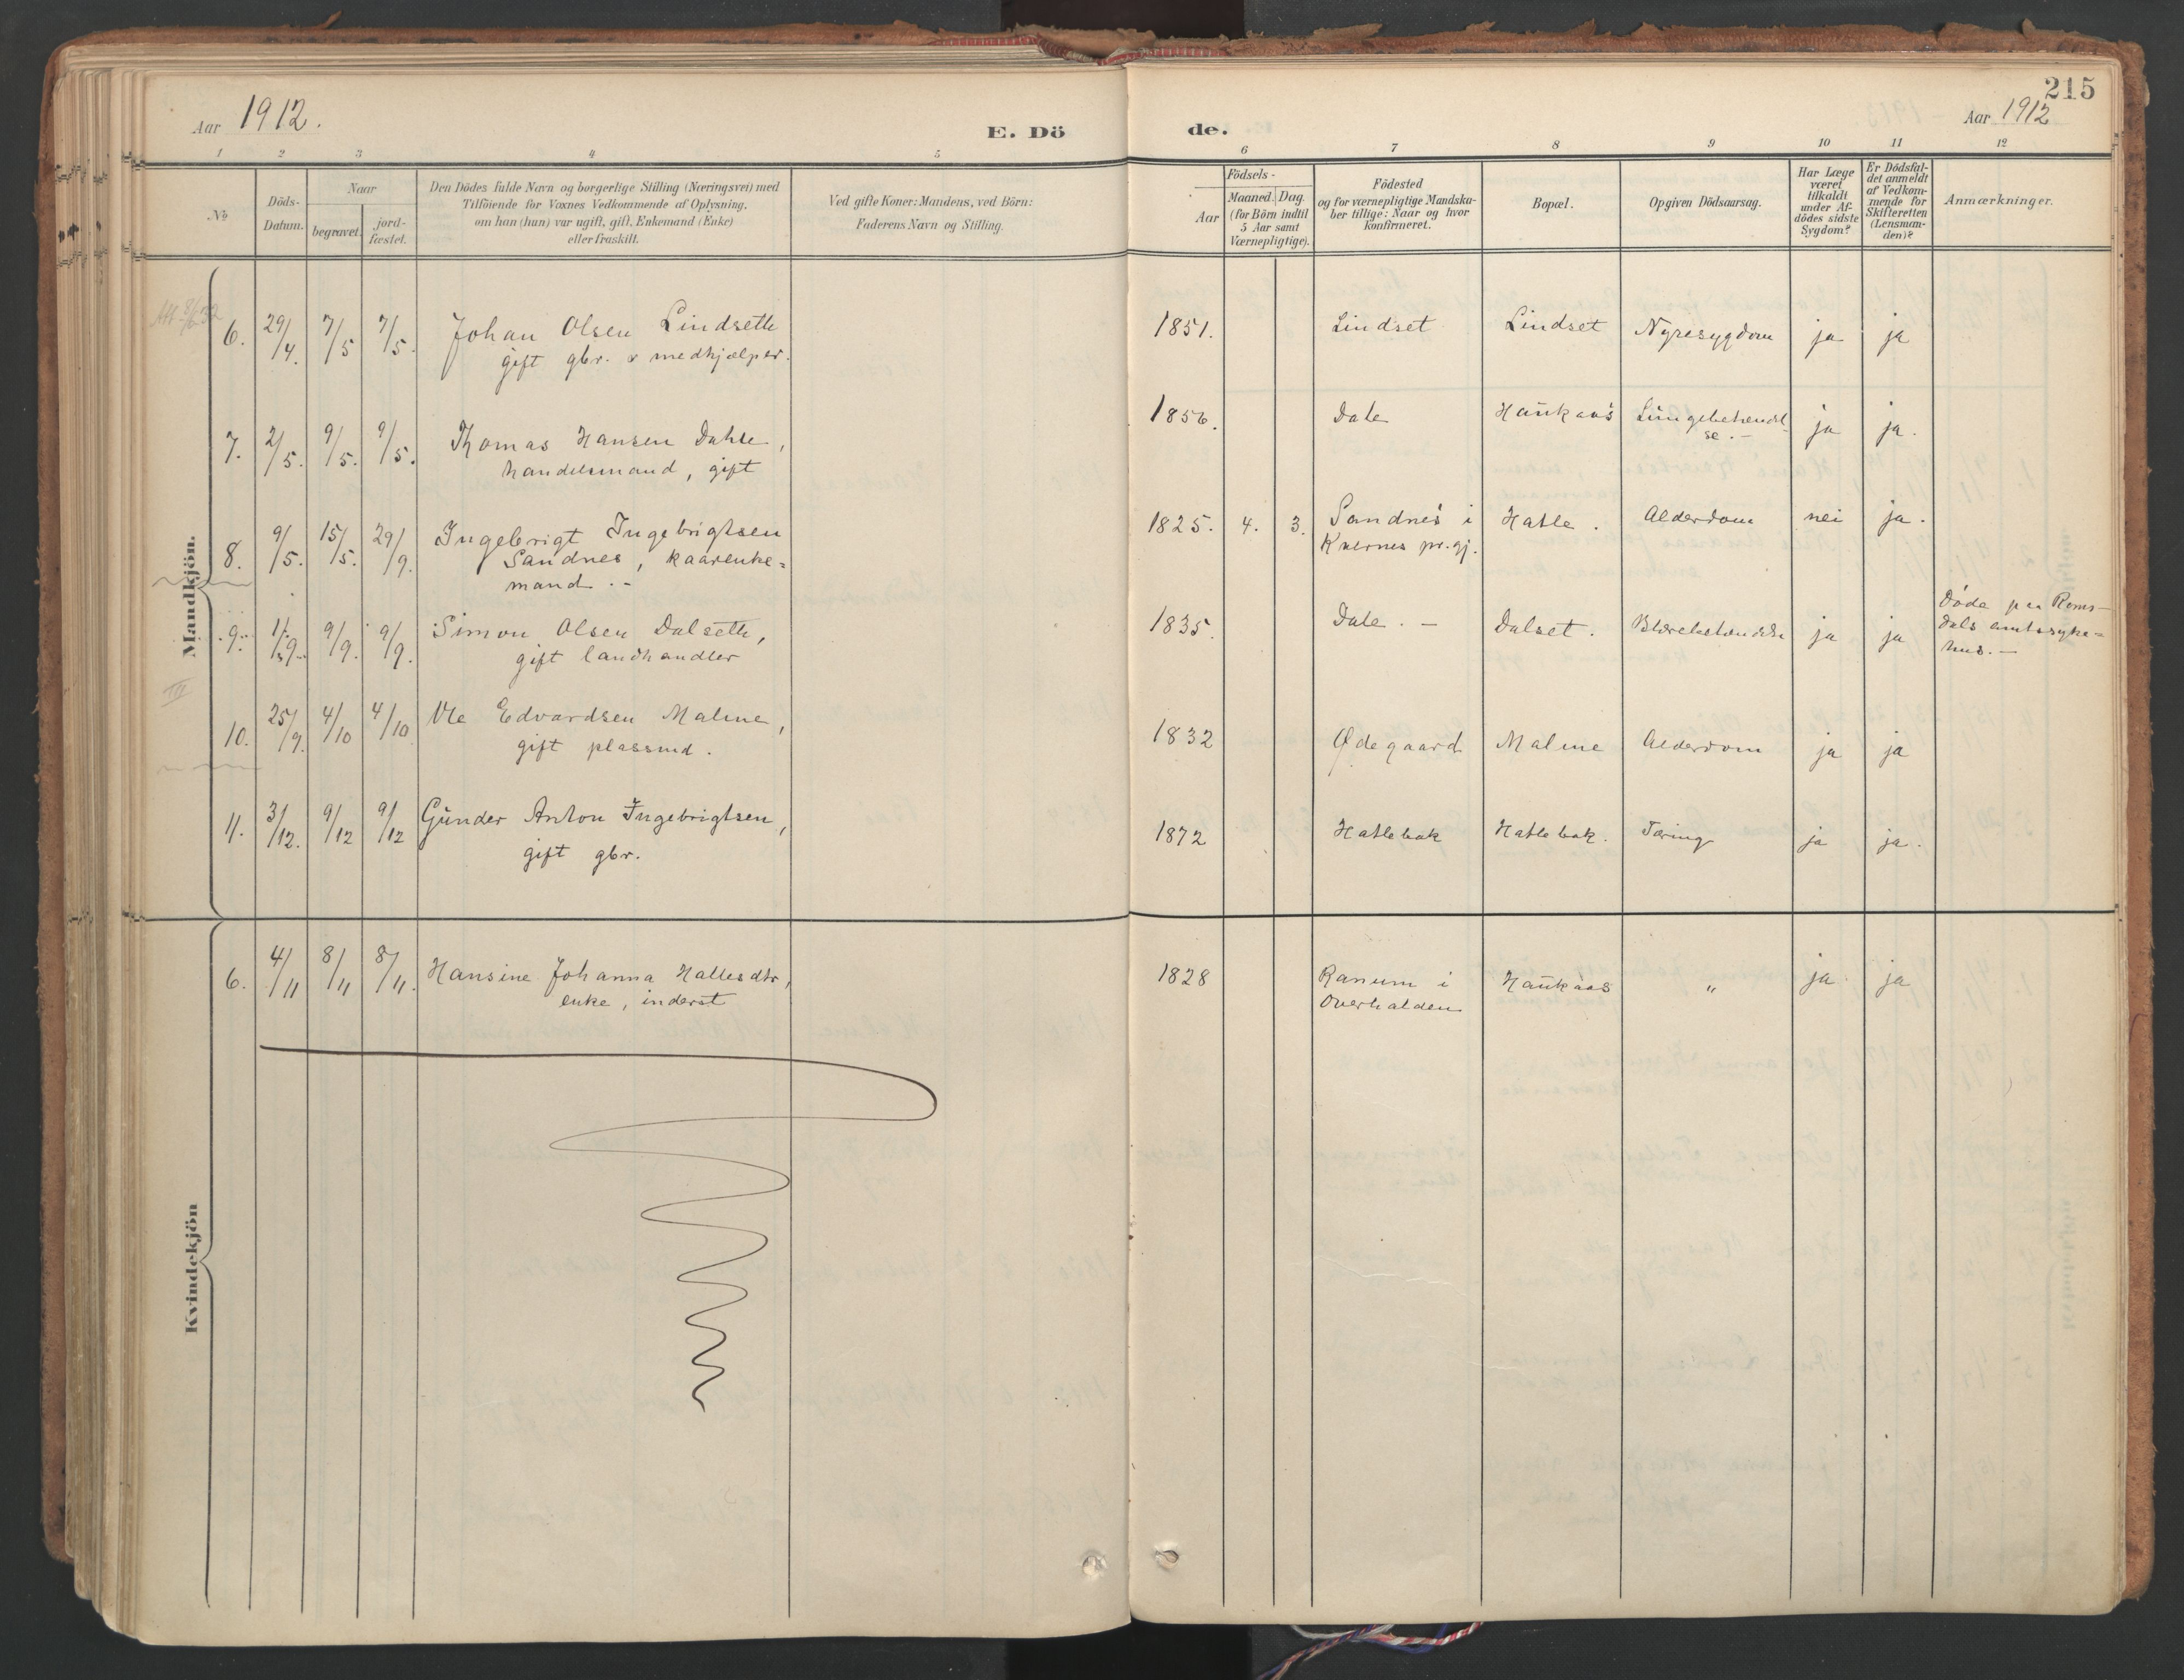 215
Aar 1912.
E. Dö
de.
Aar 1912
1 2 3 4 5
6 7 8 9 10 11 12
No
Döds-
Datum.
Naar
begravet.
jord-
fæstet.
Den Dödes fulde Navn og borgerlige Stilling (Næringsvei) med
Tilföiende for Voxnes Vedkommende af Oplysning,
om han (hun) var ugift, gift, Enkemand (Enke)
eller fraskilt.
Ved gifte Koner: Mandens, ved Börn:
Faderens Navn og Stilling.
Födsels-
Aar
Maaned. Dag.
(for Börn indtil
5 Aar samt
Værnepligtige).
Födested
og for værnepligtige Mandska-
ber tillige: Naar og hvor
konfirmeret.
Bopæl.
Opgiven Dödsaarsag.
Har Læge
været
tilkaldt
under Af-
dödes sidste
Sygdom?
Er Dödsfal-
det anmeldt
af Vedkom-
mende for
Skifteretten
(Lensman-
den)?
Anmærkninger.
Mandkjön.
6. 29/4. 7/5 7/5. Johan Olsen Lindseth 1851. Lindset Lindset Nyresygdom ja ja
gift gbr. & medhjælper.
7. 2/5. 9/5. 9/5. Thomas Hansen Dahle, 1856. Dale Haukaas Lungebetændel-
handelsmand, gift se.- ja ja.
8. 9/5. 15/5. 29/9. Ingebrigt Ingebrigtsen 1825. 4. 3. Sandnes i Hatle. Alderdom nei ja.
Sandnes, kaarenke= Kvernes pr.gj.
mand.-
9. 1/9. 9/9. 9/9. Simon Olsen Dalseth, 1835. Dale.- Dalset. Blærebetændelse ja ja Döde paa Roms-
gift landhandler dals amtssyke=
hus.-
10. 25/9. 4/10 4/10 Ole Edvardsen Malme, 1832 Ødegaard Malme Alderdom ja ja
gift plassmd.
11. 3/12. 9/12 9/12 Gunder Anton Ingebrigtsen, 1872 Hatlebak Hatlebak. Tæring ja ja.
gift gbr.
Kvindekjön
6. 4/11 8/11 8/11. Hansine Johanna Hallesdtr, 1828 Ranum i Haukaas " ja. ja
enke, inderst Overhalden